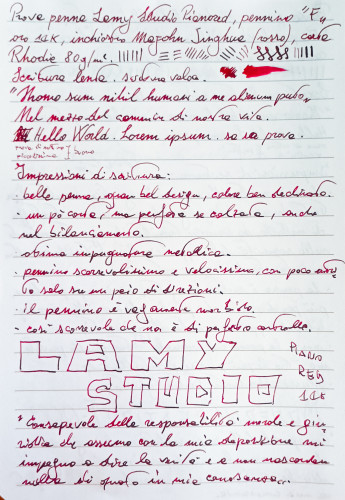 Prova penna Lamy Studio Pianored, pennino "F"
oro 14K, inchiostro Magokn Singhua (rosso), carta
Rhodia 80g/m².
Scrittura lenta. scrittura veloce.
"Homo sum nihil humani a me alienum puto"
Nel mezzo del cammin di nostra vita.
Hello World. Lorem ipsum. sa sa prova.
Impressioni di scrittura:
· bella penna, gran bel design, colore ben declinato.
· un pò corta, ma perfetta se calzata, anche
nel bilanciamento.
· ottima impugnatura metallica.
· pennino scorrevolissimo e velocissimo, con poco attri
to solo su un paio di direzioni.
· il pennino è vagamente morbido.
· così scorrevole che non è di perfetto controllo.
LAMY
STUDIO
PIANO
RED
14K
"Consapevole della responsabilità morale e giu
ridica che assumo con la mia deposizione mi
impegno a dire la verità e a non nascondere
nulla di quanto in mia conoscenza..."